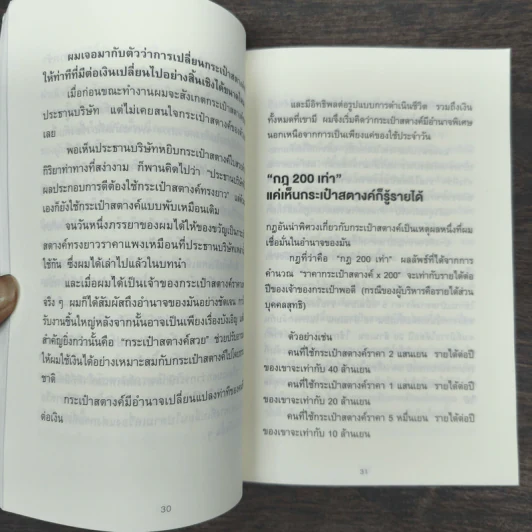 ผมเจอมากับตัวว่าการเปลี่ยนกระเป๋าสตางค์
ให้ท่าทีที่มีต่อเงินเปลี่ยนไปอย่างสิ้นเชิงได้
เมื่อก่อนขณะทำงานผมจะสังเกตกระเป๋าสตางค์
ประธานบริษัท แต่ไม่เคยสนใจกระเป๋าสตางค์
เลย
พอเห็นประธานบริษัทหยิบกระเป๋าสตางค์
กิริยาท่าทางที่สง่างาม ก็พานคิดไปว่า "ประธาน
ผลประกอบการดีต้องใช้กระเป๋าสตางค์ทรงยาว"
เองก็ยังใช้กระเป๋าสตางค์แบบพับเหมือนเดิม
จนวันหนึ่งภรรยาของผมได้ให้ของขวัญเป็น
สตางค์ทรงยาวราคาแพงเหมือนที่ประธานบริษัท
ใช้กัน ซึ่งผมได้เล่าไปแล้วในบทนำ
และเมื่อผมได้เป็นเจ้าของกระเป๋าสตางค์
จริง ๆ ผมก็ได้สัมผัสถึงอำนาจของมันอย่างชัดเจน
รับงานชิ้นใหญ่หลังจากนั้นอาจเป็นเพียงเรื่องบังเอิญ
สำคัญยิ่งกว่านั้นคือ "กระเป๋าสตางค์สวย"
ให้ผมใช้เงินได้อย่างเหมาะสมกับกระเป๋าสตางค์
ชาติ
กระเป๋าสตางค์มีอำนาจเปลี่ยนแปลงท่าที
ต่อเงิน
30
และมีอิทธิพลต่อรูปแบบการดำเนินชีวิต รวมถึงเงิน
ทั้งหมดที่เขามี ผมจึงเริ่มคิดว่ากระเป๋าสตางค์มีอำนาจพิเศษ
นอกเหนือจากการเป็นเพียงแค่ของใช้ประจำวัน
"กฎ 200 เท่า"
แค่เห็นกระเป๋าสตางค์ก็รู้รายได้
กฎอันน่าพิศวงเกี่ยวกับกระเป๋าสตางค์เป็นเหตุผลหนึ่งที่ผม
เชื่อมั่นในอำนาจของมัน
กฎที่ว่าคือ "กฎ 200 เท่า" ผลลัพธ์ที่ได้จากการ
คำนวณ "ราคากระเป๋าสตางค์ x 200" จะเท่ากับรายได้ต่อ
ปีของเจ้าของกระเป๋าพอดี (กรณีของผู้บริหารคือรายได้ส่วน
บุคคลสุทธิ)
ตัวอย่างเช่น
คนที่ใช้กระเป๋าสตางค์ราคา 2 แสนเยน รายได้ต่อปี
ของเขาจะเท่ากับ 40 ล้านเยน
คนที่ใช้กระเป๋าสตางค์ราคา 1 แสนเยน รายได้ต่อปี
ของเขาจะเท่ากับ 20 ล้านเยน
คนที่ใช้กระเป๋าสตางค์ราคา 5 หมื่นเยน รายได้ต่อปี
ของเขาจะเท่ากับ 10 ล้านเยน
31